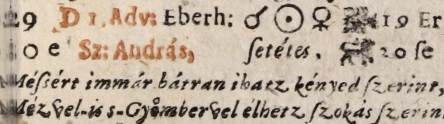 29 D 1. Adv: Eberh: ☌ ☉ ♀ 19 Er
30 e Sz: András, ſetétes. 20 ſe
Méſsért immár bátran ihatz kényed ſzerint,
Mézvel-is s-Gyömbervel élhetz ſzokás ſzerin